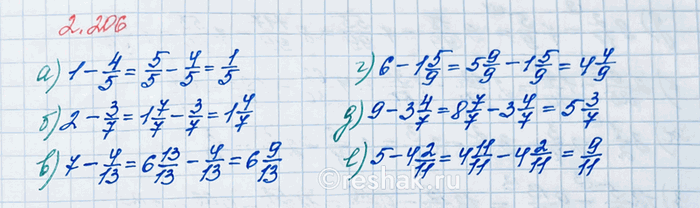 2.206
а) 1 - 4/5 = 5/5 - 4/5 = 1/5
б) 2 - 3/7 = 1 7/7 - 3/7 = 1 4/7
в) 7 - 4/13 = 6 13/13 - 4/13 = 6 9/13
г) 6 - 1 5/9 = 5 9/9 - 1 5/9 = 4 4/9
д) 9 - 3 4/7 = 8 7/7 - 3 4/7 = 5 3/7
е) 5 - 4 2/11 = 4 11/11 - 4 2/11 = 9/11
©reshak.ru